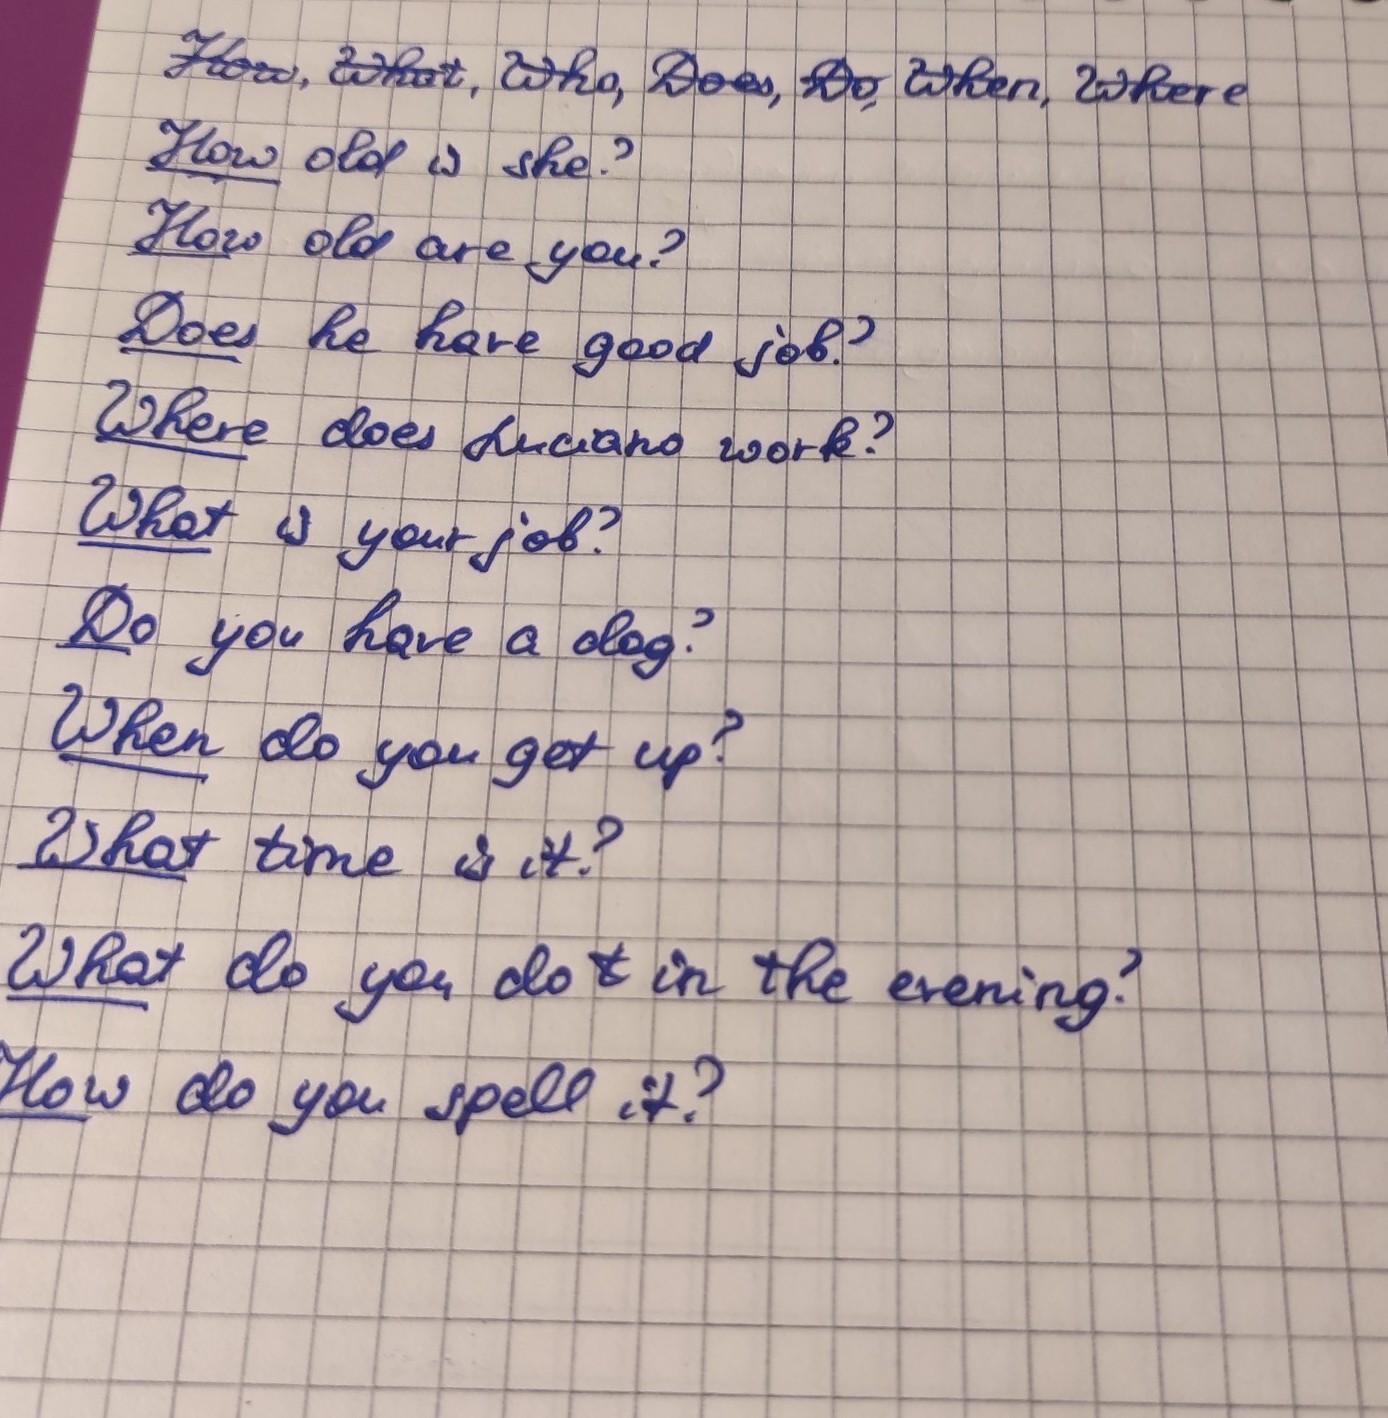 How, What, Who, Does, Do, When, Where
How old is she?
How old are you?
Does he have good job?
Where does Luciano work?
What is your job?
Do you have a dog?
When do you get up?
What time is it?
What do you do t in the evening?
How do you spell it?